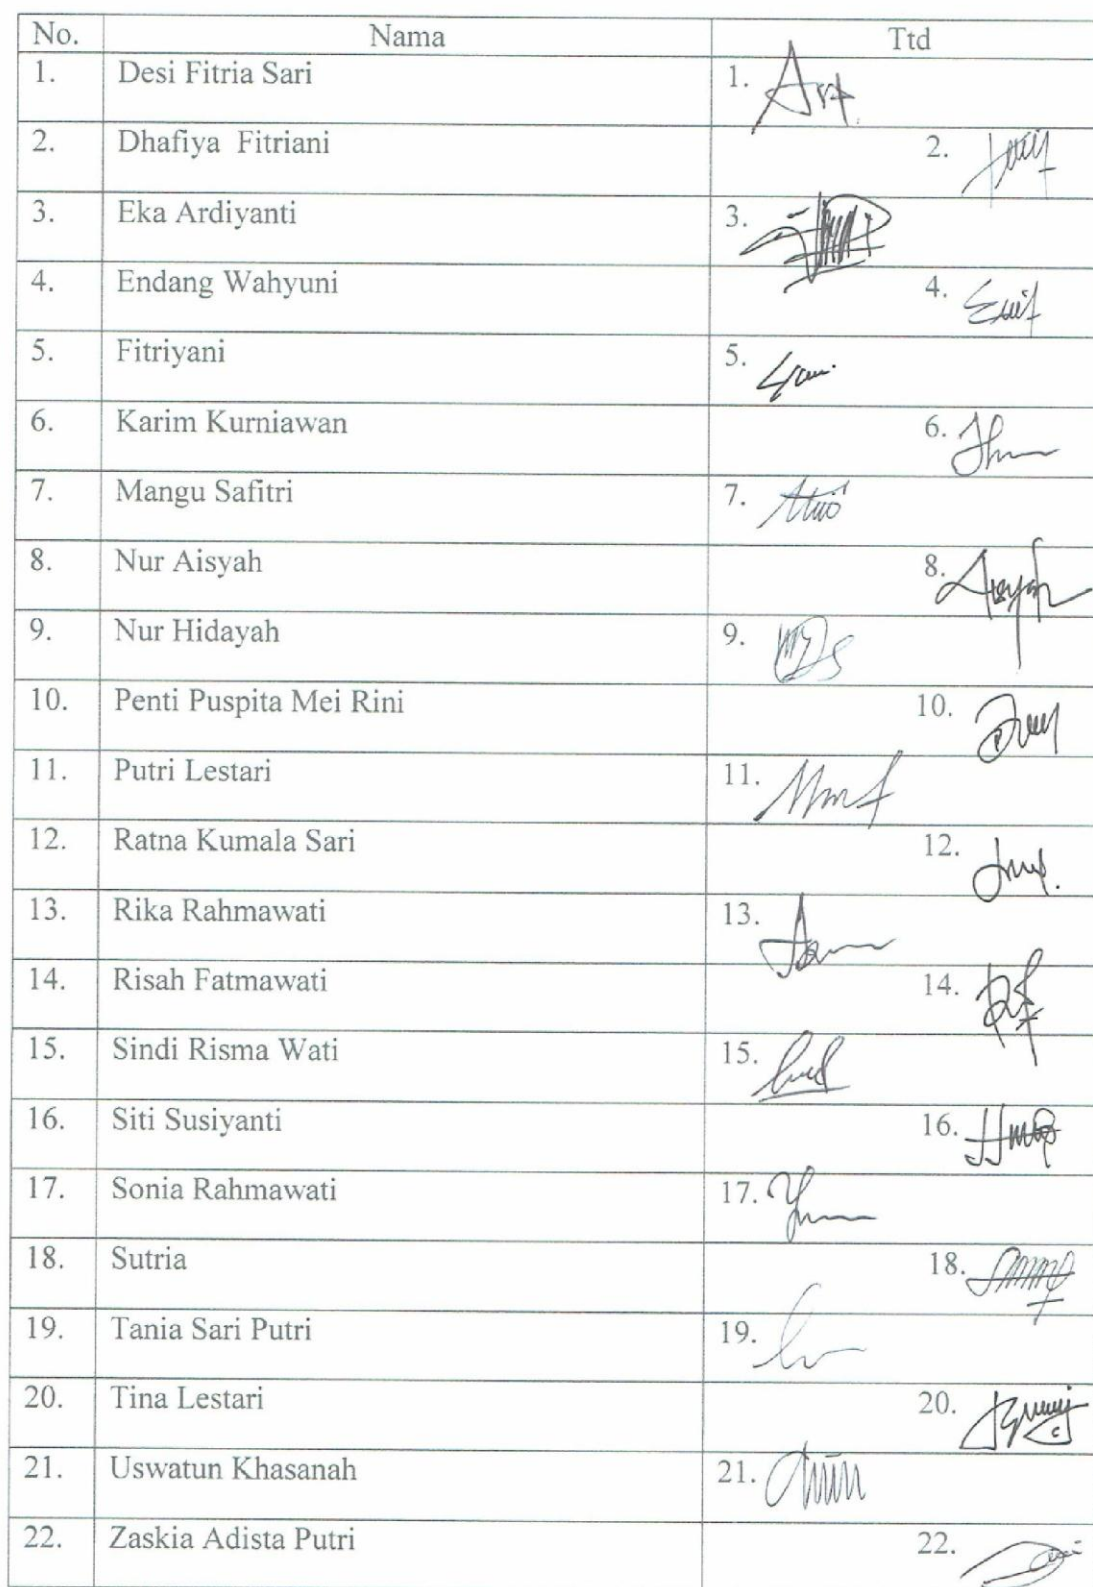 No. Nama Ttd
1. Desi Fitria Sari 1.
2. Dhafiya Fitriani 2.
3. Eka Ardiyanti 3.
4. Endang Wahyuni 4.
5. Fitriyani 5.
6. Karim Kurniawan 6.
7. Mangu Safitri 7.
8. Nur Aisyah 8. Aisyah
9. Nur Hidayah 9.
10. Penti Puspita Mei Rini 10.
11. Putri Lestari 11.
12. Ratna Kumala Sari 12.
13. Rika Rahmawati 13.
14. Risah Fatmawati 14.
15. Sindi Risma Wati 15.
16. Siti Susiyanti 16.
17. Sonia Rahmawati 17.
18. Sutria 18.
19. Tania Sari Putri 19.
20. Tina Lestari 20.
21. Uswatun Khasanah 21.
22. Zaskia Adista Putri 22.